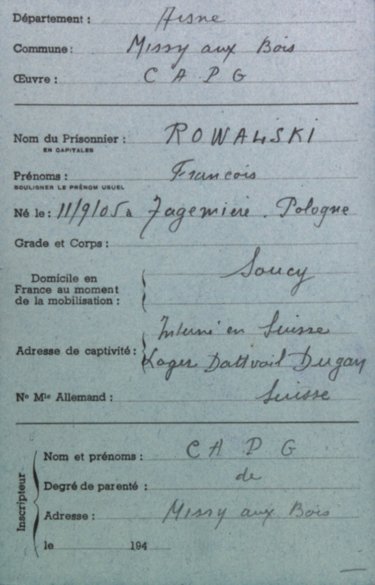 Département : Aisne
Commune : Missy aux Bois
Œuvre : C A P G
Nom du Prisonnier : ROWALSKI
EN CAPITALES
Prénoms : Francois
SOULIGNER LE PRÉNOM USUEL
Né le : 11/9/05 à Zagemiere. Pologne
Grade et Corps :
Domicile en
France au moment
de la mobilisation :
Soucy
Interné en Suisse
Adresse de captivité : Lager Dattvail Dugan
No Mle Allemand : Suisse
Inscripteur
Nom et prénoms : C A P G
Degré de parenté : de
Adresse : Missy aux Bois
le 194